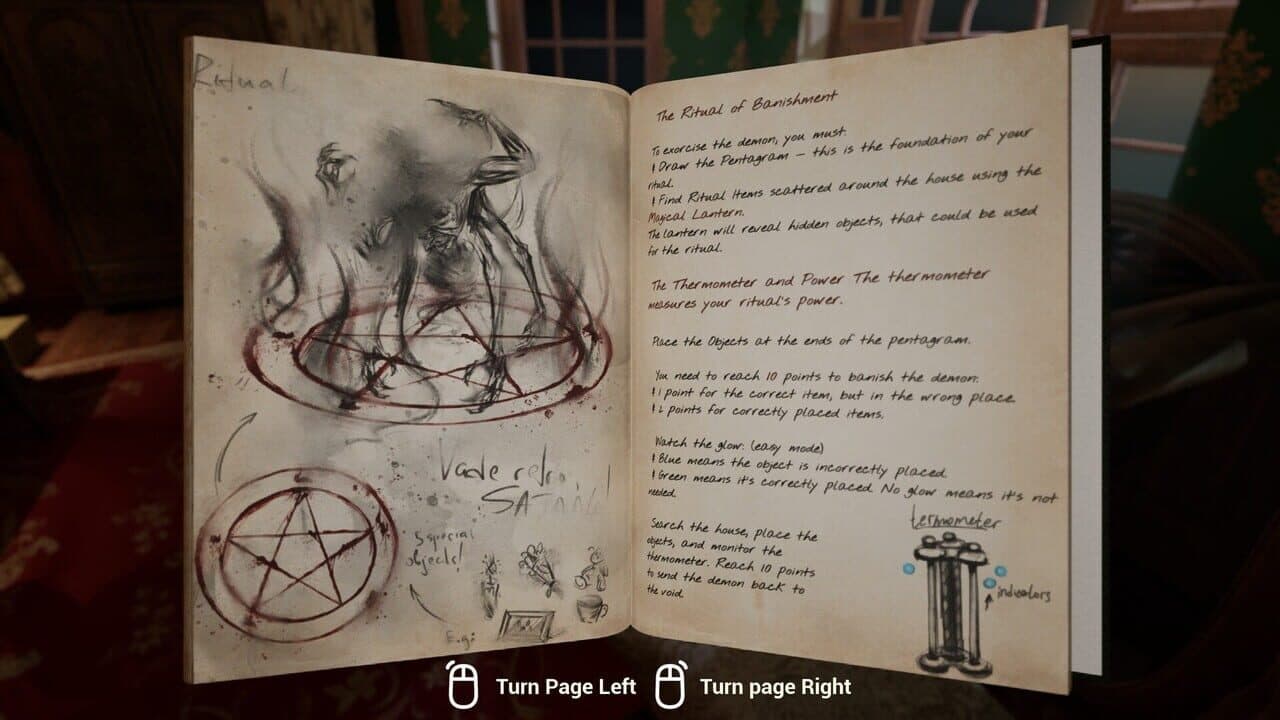 Ritual
Vade retro
SATANA!
5 special
objects!
E.g:
The Ritual of Banishment
To exorcise the demon, you must:
! Draw the Pentagram – this is the foundation of your
ritual.
! Find Ritual Items scattered around the house using the
Magical Lantern.
The lantern will reveal hidden objects, that could be used
for the ritual.
The Thermometer and Power The thermometer
measures your ritual's power.
Place the Objects at the ends of the pentagram.
You need to reach 10 points to banish the demon:
! 1 point for the correct item, but in the wrong place.
! 2 points for correctly placed items.
Watch the glow: (easy mode)
! Blue means the object is incorrectly placed.
! Green means it's correctly placed. No glow means it's not
needed.
Search the house, place the
objects, and monitor the
thermometer. Reach 10 points
to send the demon back to
the void.
termometer
indicators
Turn Page Left
Turn page Right